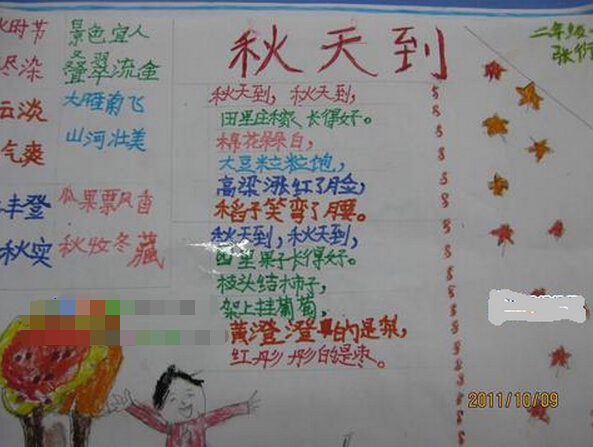 秋天到
二年级
张
时节
景色宜人
尽染
叠翠流金
云淡
大雁南飞
气爽
山河壮美
丰登
瓜果飘香
秋实
秋收冬藏
秋天到，秋天到，
田里庄稼长得好。
棉花朵朵白，
大豆粒粒饱，
高梁涨红了脸，
稻子笑弯了腰。
秋天到，秋天到，
园里果子长得好。
枝头结柿子，
架上挂葡萄，
黄澄澄的是梨，
红彤彤的是枣。
2011/10/09